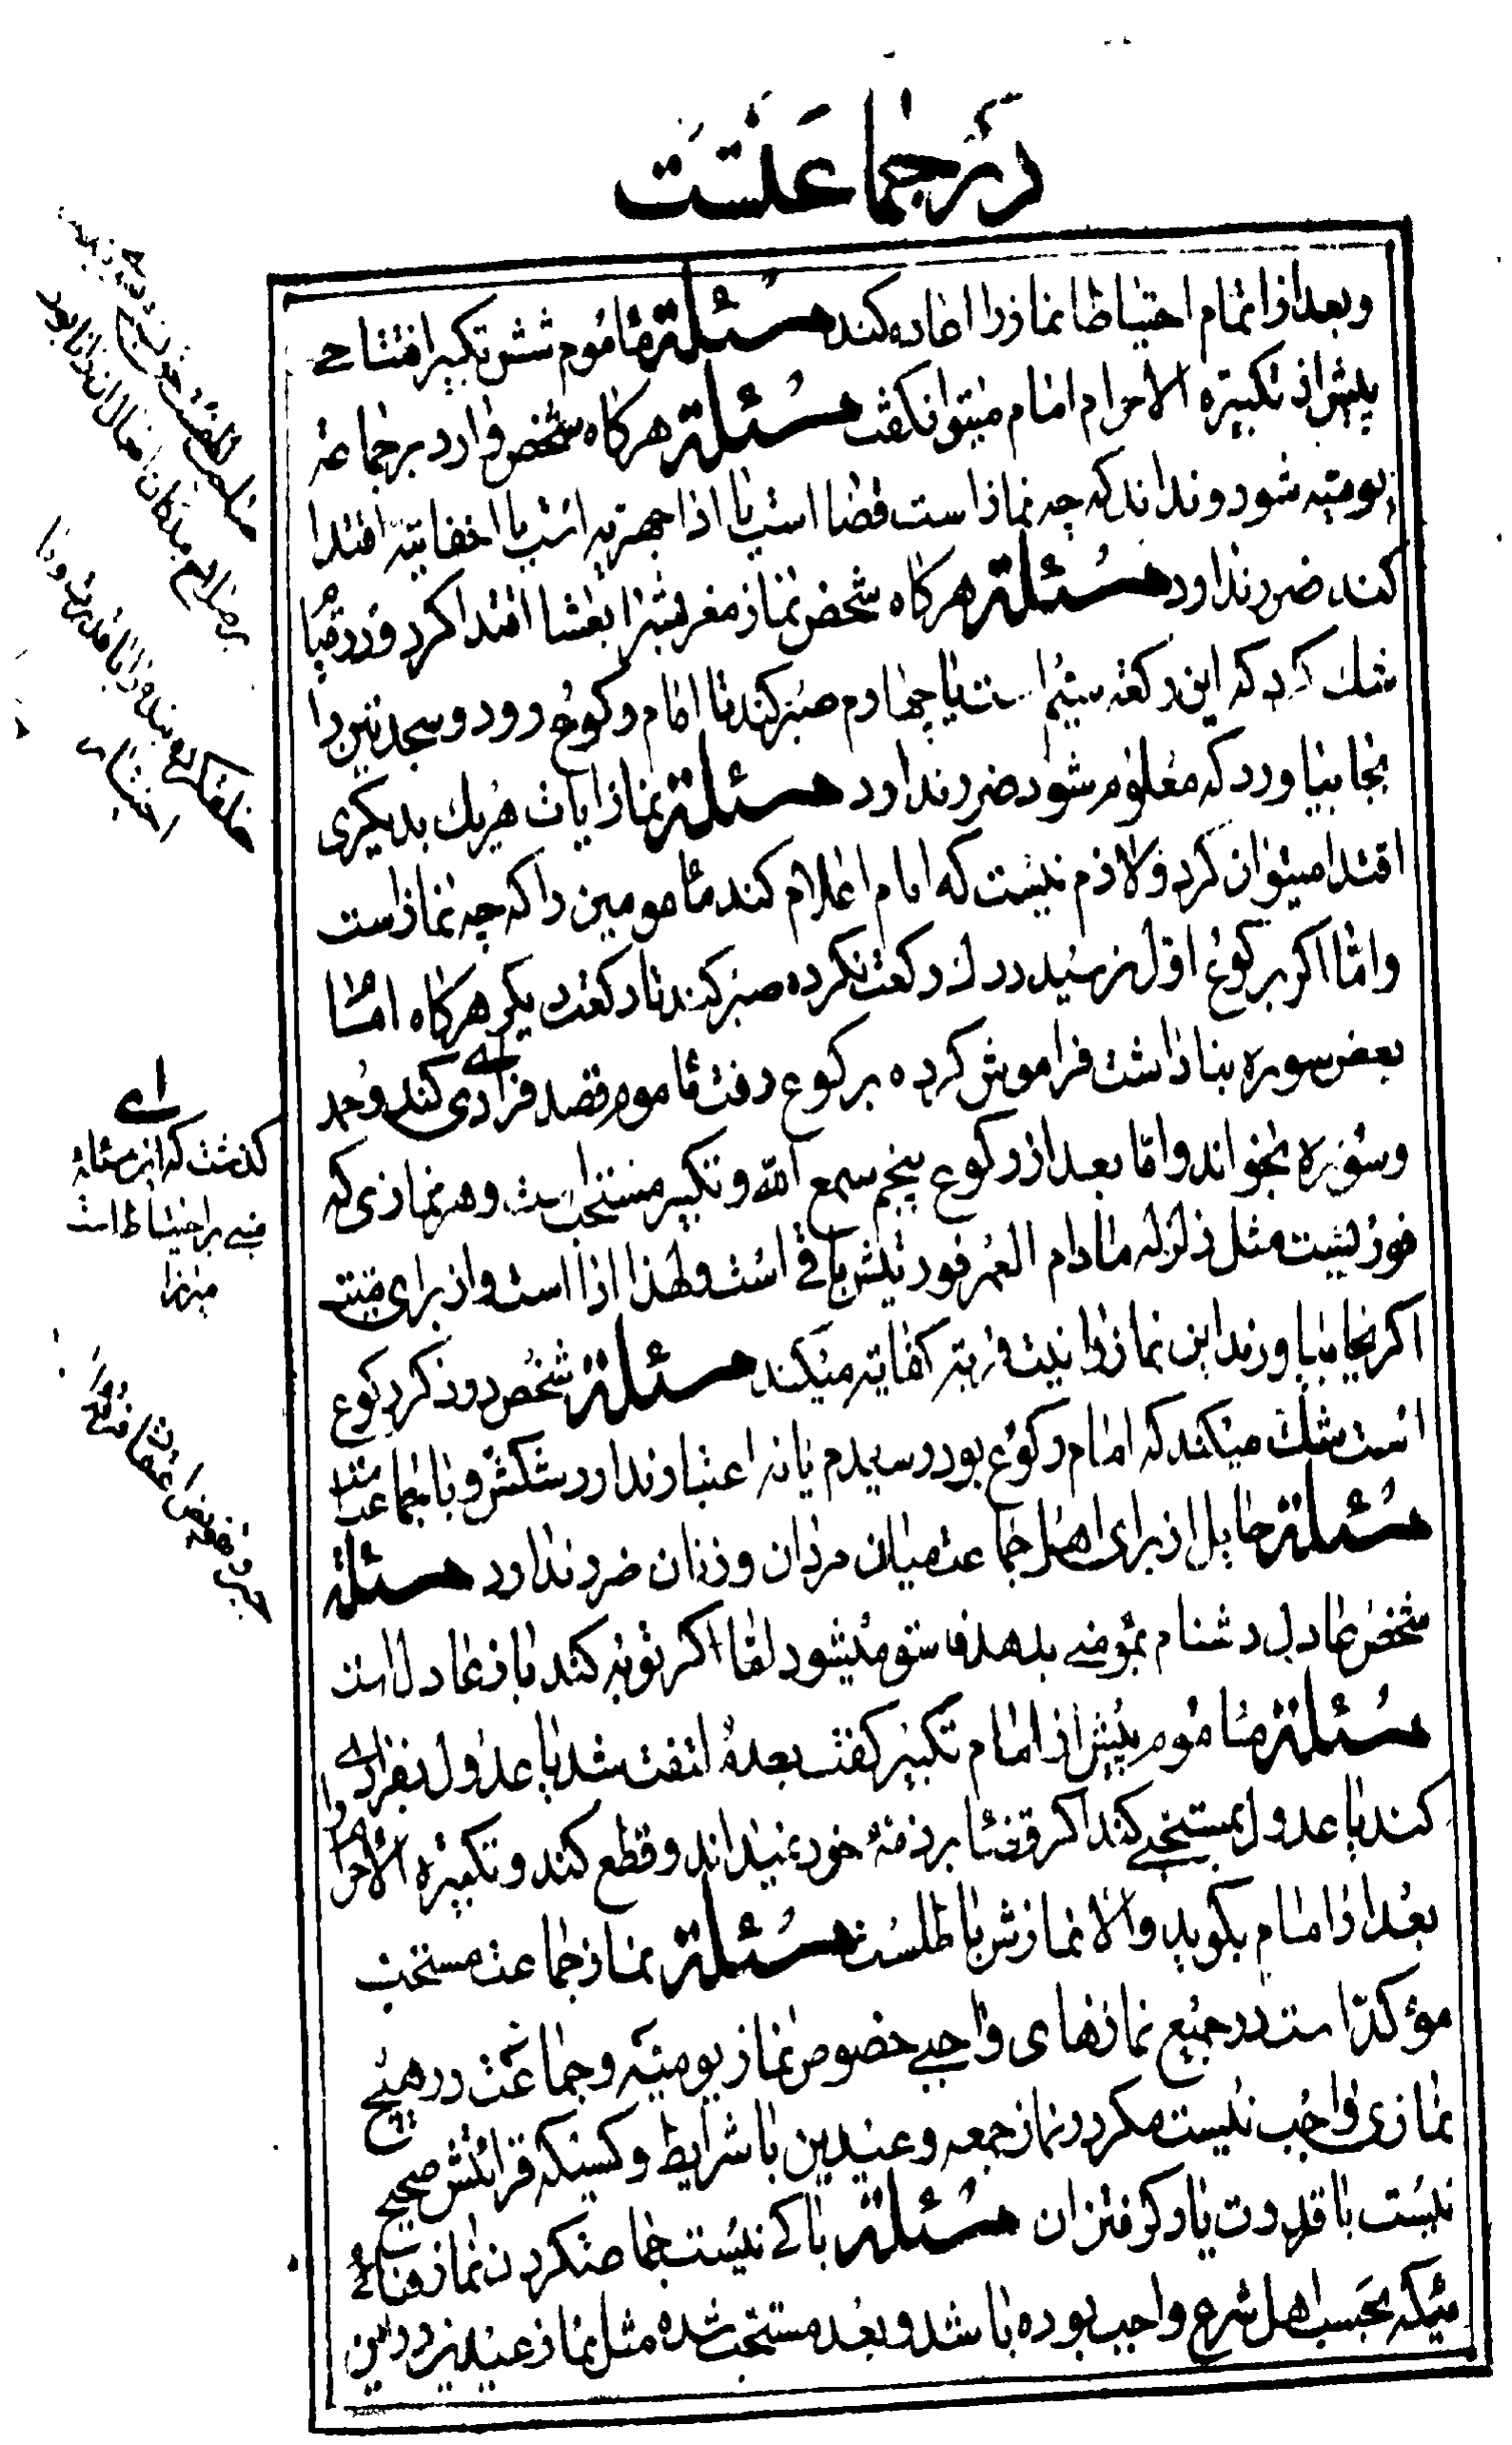 در جماعتست
و بعد از اتمام احتیاطا نماز را اعاده کند مسئلة مأموم شش تکبیر افتتاحی
پیش از تکبیرة الاحرام امام میتوان گفت مسئلة هرگاه شخص وارد بر جماعة
یومیه شود و نداند که چه نماز است قضا است یا ادا جهریه است یا اخفاتیه اقتدا
کند ضرر ندارد مسئلة هرگاه شخص نماز مغربش را بعشا اقتدا کرد و در قیام
شك کرد که این رکعة سیّم است یا چهارم صبر کند تا امام رکوع رود و سجدتین را
بجا بیاورد که معلوم شود ضرر ندارد مسئلة نماز ایات هر یك بدیگری
اقتدا میتوان کرد و لازم نیست که امام اعلام کند مأمومین را که چه نماز است
و امّا اگر برکوع اول نرسید درك رکعت نکرده صبر کند تا رکعت دیگر هرگاه امام
بعض سوره بنا داشت فراموش کرده برکوع رفت مأموم قصد فرادی کند و حمد
و سوره بخواند و امّا بعد از رکوع پنجم سمع الله و تکبیر مستحب است و هر نمازی که
فور نیست مثل زلزله مادام العمر فوریتش باقی است و لهذا ادا است و از برای میّت
اگر بجا بیاورند این نماز را نیت قربة کفایة میکند مسئلة شخص در ذکر رکوع
است شك میکند که امام رکوع بود رسیدم یا نه اعتبار ندارد شکش و با جماعت است
مسئلة حایل از برای اهل جماعت میان مردان و زنان ضرر ندارد مسئلة
شخص عادل دشنام بمؤمنی بدهد فاسق میشود امّا اگر توبه کند باز عادل است
مسئلة مأموم پیش از امام تکبیر گفت بعده ملتفت شد یا عدول بفرادی
کند یا عدول بمستحبی کند اگر قضا بر ذمّهٔ خود نمیداند و قطع کند و تکبیرة الاحرام را
بعد از امام بگوید والا نمازش باطلست مسئلة نماز جماعت مستحب
مؤکد است در جمیع نمازهای واجبی خصوص نماز یومیّه و جماعت در هیچ
نمازی واجب نیست مگر در نماز جمعه و عیدین با شرایط و کسیکه قرائتش صحیح
نیست با قدرت یاد گرفتن ان مسئلة باکی نیست جماعة کردن نماز
میکه بحسب اهل شرع واجب بوده باشد و بعد مستحب شده مثل نماز عید نیز در این
ای
گذشت که این مسئلة
مبنی بر احتیاط است
میرزا